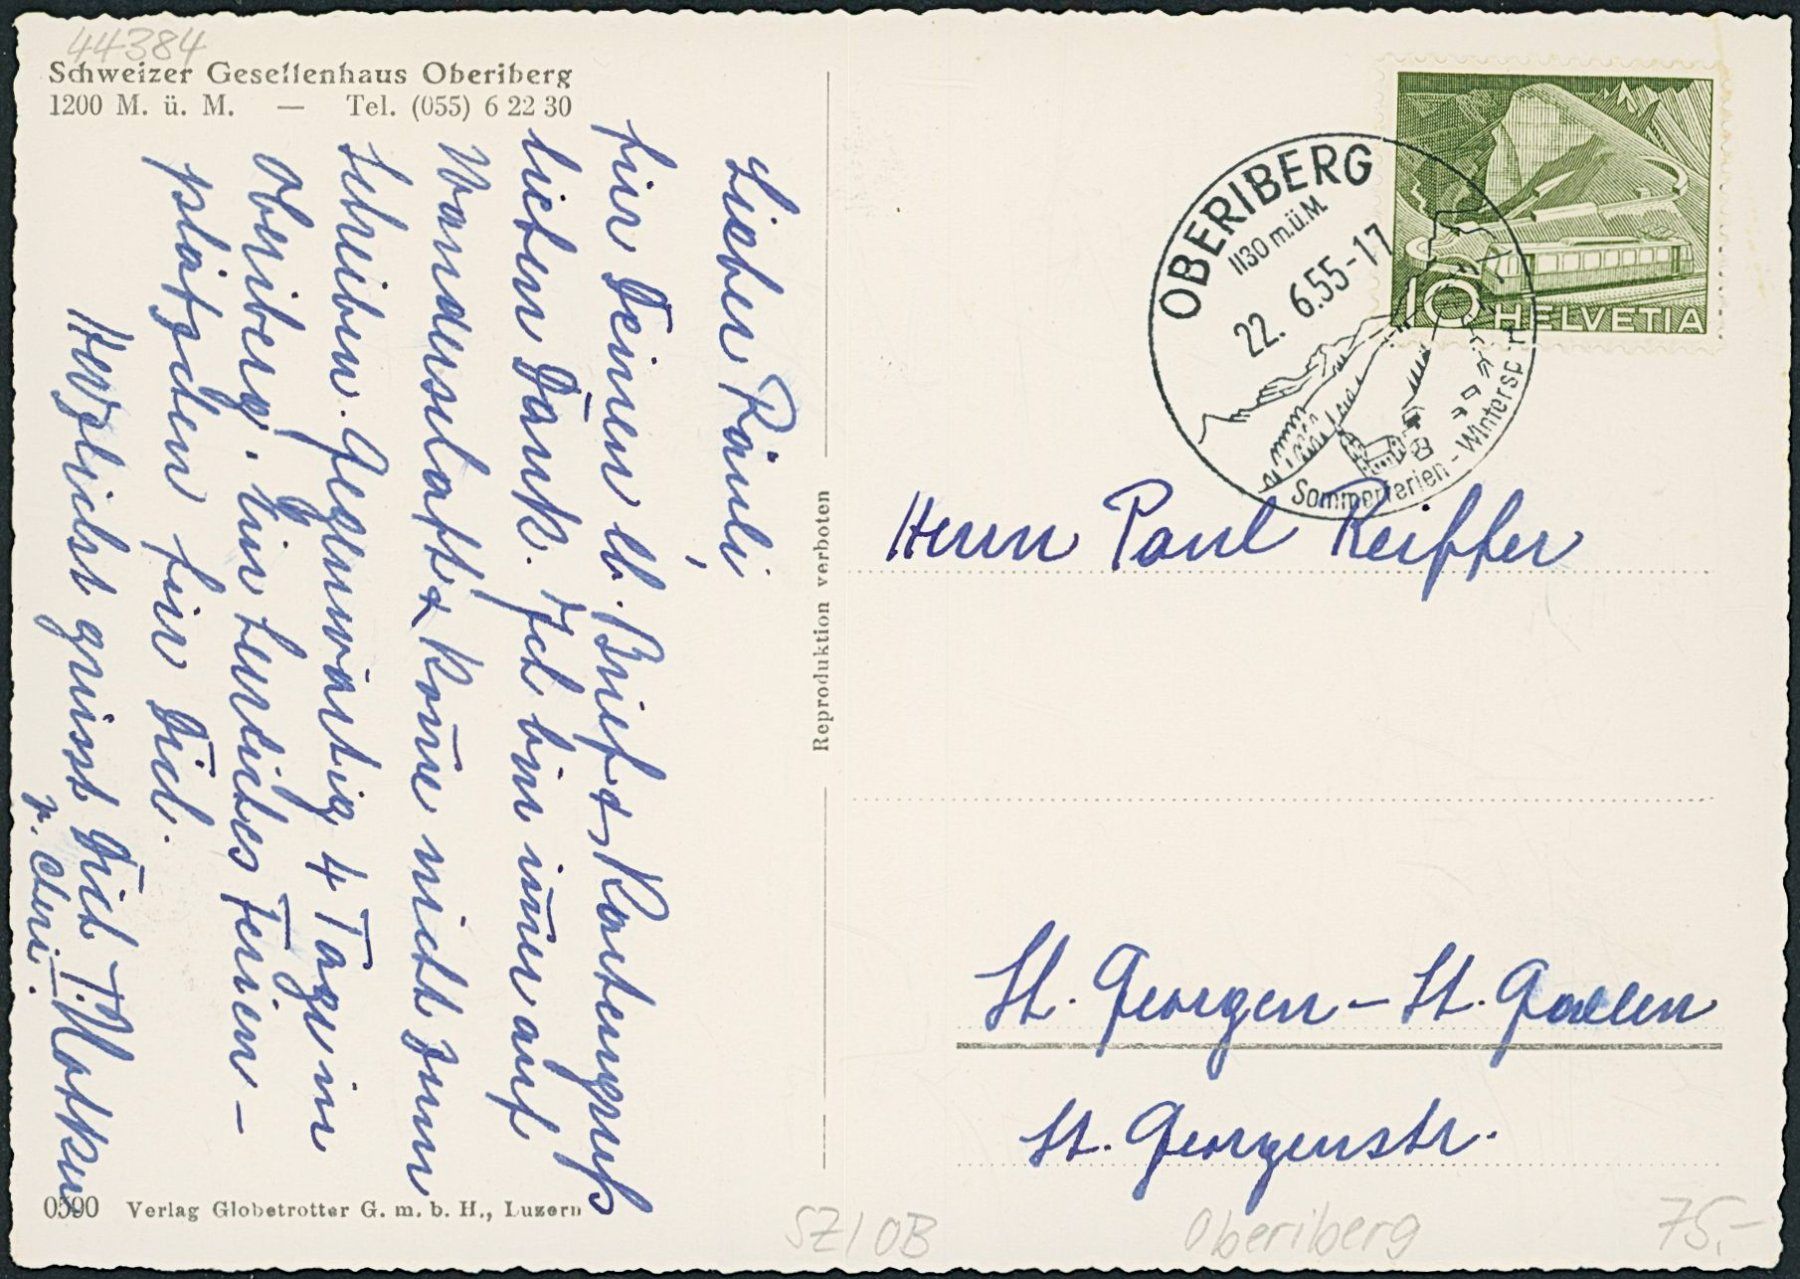 44384
Schweizer Gesellenhaus Oberiberg
1200 M. ü. M. — Tel. (055) 6 22 30
Lieber Päuli,
für Deinen lb. Brief & Kartengruß
lieben Dank. Ich bin im̄er auf
Wanderschaft & kom̄e nicht zum
schreiben. Gegenwärtig 4 Tage in
Oberiberg. Ein herrliches Ferien-
plätzchen für Dich.
Herzlichst grüsst Dich T. Notker
0590 Verlag Globetrotter G. m. b. H., Luzern
Reproduktion verboten
OBERIBERG
1130 m.ü.M.
22. 6.55-17
Sommerferien - Wintersport
10 HELVETIA
Herrn Paul Reiffer
St. Georgen - St. Gallen
St. Georgenstr.
SZ/OB
Oberiberg
75.-